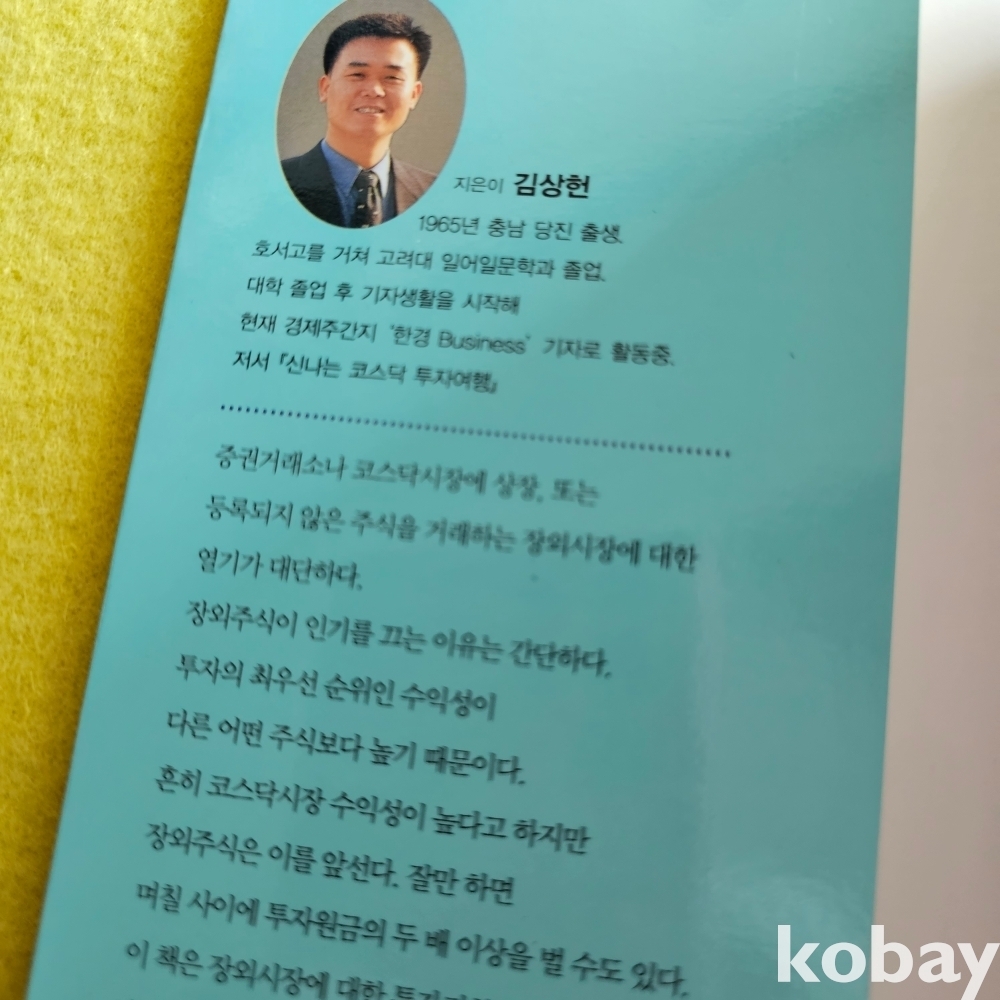 지은이 김상헌
1965년 충남 당진 출생.
호서고를 거쳐 고려대 일어일문학과 졸업.
대학 졸업 후 기자생활을 시작해
현재 경제주간지 '한경 Business' 기자로 활동중.
저서 『신나는 코스닥 투자여행』
증권거래소나 코스닥시장에 상장, 또는
등록되지 않은 주식을 거래하는 장외시장에 대한
열기가 대단하다.
장외주식이 인기를 끄는 이유는 간단하다.
투자의 최우선 순위인 수익성이
다른 어떤 주식보다 높기 때문이다.
흔히 코스닥시장 수익성이 높다고 하지만
장외주식은 이를 앞선다. 잘만 하면
며칠 사이에 투자원금의 두 배 이상을 벌 수도 있다.
이 책은 장외시장에 대한
kobay